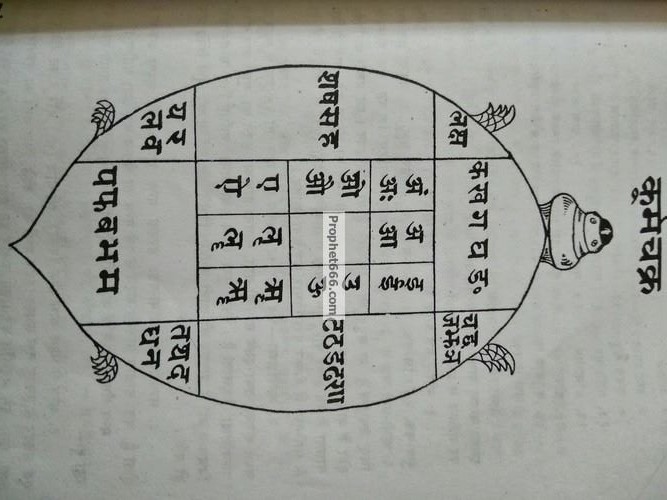 कूर्मचक्र
लक्ष
क ख ग घ ङ
च छ
ज झ ञ
अं
अः
अ
आ
इ
ई
श ष स ह
ओ
औ
उ
ऊ
ट ठ ड ढ ण
ए
ऐ
ऌ
ॡ
ऋ
ॠ
य र
ल व
प फ ब भ म
त थ द
ध न
Prophet666.com